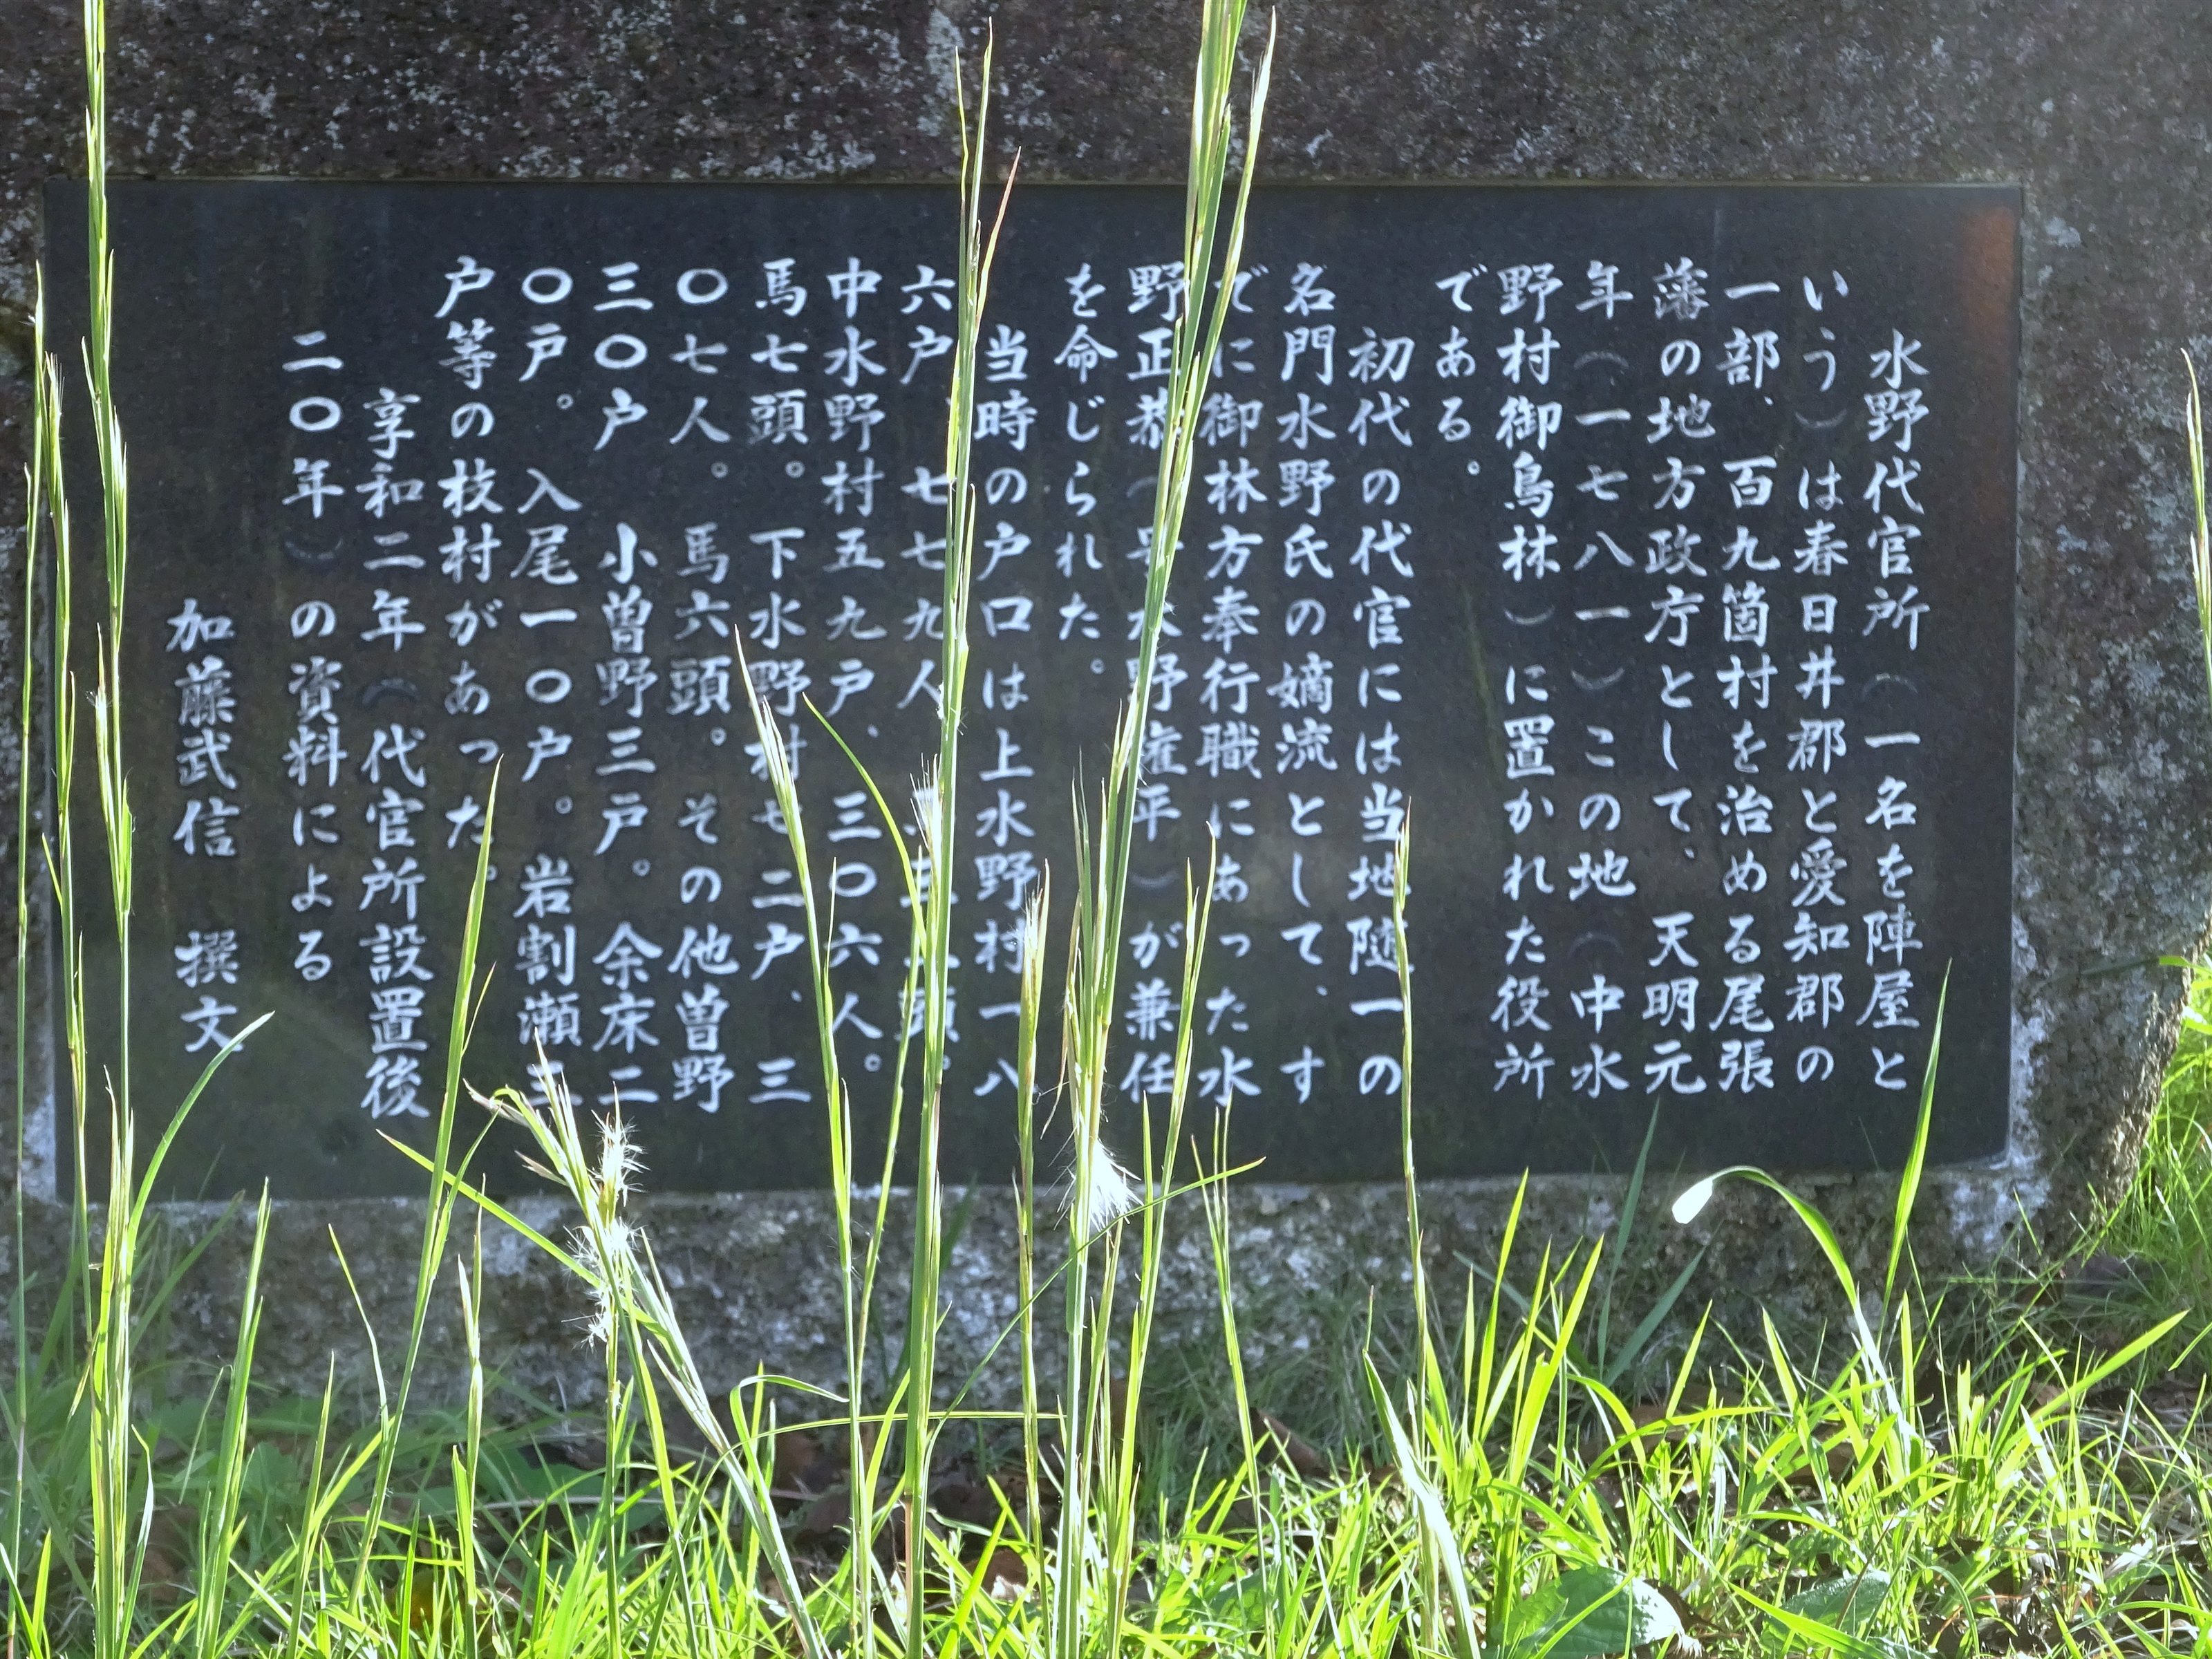 水野代官所（一名を陣屋と
いう）は春日井郡と愛知郡の
一部、百九箇村を治める尾張
藩の地方政庁として、天明元
年（一七八一）この地（中水
野村御鳥林）に置かれた役所
である。
初代の代官には当地随一の
名門水野氏の嫡流として、す
でに御林方奉行職にあった水
野正恭（号水野権平）が兼任
を命じられた。
当時の戸口は上水野村一八
六戸、七七九人、頭。
中水野村五九戸、三〇六人。
馬七頭。下水野村七二戸、三
〇七人。馬六頭。その他曽野
三〇戸 小曽野三戸。余床二
〇戸。入尾一〇戸。岩割瀬三
戸等の枝村があった。
享和二年（代官所設置後
二〇年）の資料による
加藤武信 撰文